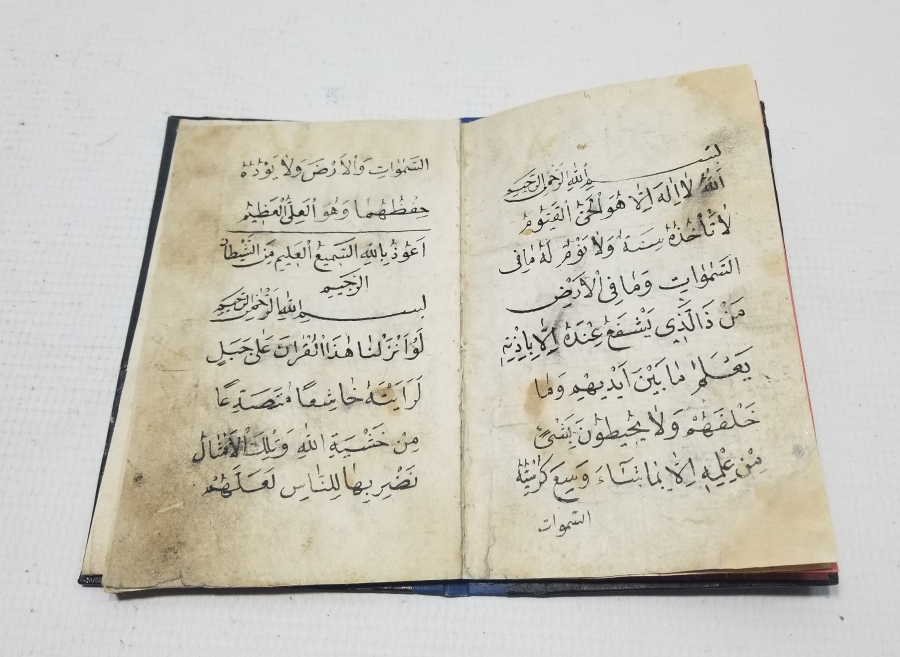 بسم الله الرحمن الرحيم
اَللّٰهُ لَا اِلٰهَ اِلَّا هُوَ الْحَىُّ الْقَيُّومُ
لَا تَأْخُذُهُ سِنَةٌ وَلَا نَوْمٌ لَهُ مَا فِى
السَّمٰوَاتِ وَمَا فِى الْاَرْضِ
مَنْ ذَا الَّذِى يَشْفَعُ عِنْدَهُ اِلَّا بِاِذْنِهِ
يَعْلَمُ مَا بَيْنَ اَيْدِيهِمْ وَمَا
خَلْفَهُمْ وَلَا يُحِيطُونَ بِشَىْءٍ
مِنْ عِلْمِهِ اِلَّا بِمَا شَاءَ وَسِعَ كُرْسِيُّهُ
السموات
السَّمٰوَاتِ وَالْاَرْضَ وَلَا يَؤُدُهُ
حِفْظُهُمَا وَهُوَ الْعَلِىُّ الْعَظِيمُ
اَعُوذُ بِاللّٰهِ السَّمِيعِ الْعَلِيمِ مِنَ الشَّيْطَانِ
الرَّجِيمِ
بسم الله الرحمن الرحيم
لَوْ اَنْزَلْنَا هٰذَا الْقُرْاٰنَ عَلَى جَبَلٍ
لَرَاَيْتَهُ خَاشِعًا مُتَصَدِّعًا
مِنْ خَشْيَةِ اللّٰهِ وَتِلْكَ الْاَمْثَالُ
نَضْرِبُهَا لِلنَّاسِ لَعَلَّهُمْ